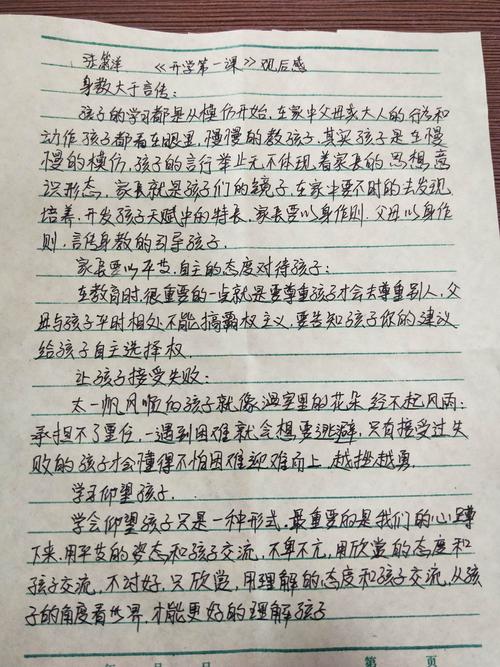 张 洋 《开学第一课》观后感
身教大于言传:
孩子的学习都是从模仿开始,在家中父母亲大人的行为和
动作孩子都看在眼里,慢慢的教孩子,其实孩子是在慢
慢的模仿,孩子的言行举止无不体现着家长的思想,意
识形态,家长就是孩子们的镜子,在家中要不时的去发现
培养,开发孩子天赋中的特长,家长要以身作则.父母以身作
则,言传身教的引导孩子.
家长要以平等.自主的态度对待孩子:
在教育时,很重要的一点就是要尊重孩子才会去尊重别人,父
母与孩子平时相处不能搞霸权主义,要告知孩子你的建议
给孩子自主选择权.
让孩子接受失败:
太一帆风顺的孩子就像温室里的花朵经不起风雨:
承担不了重任,一遇到困难就会想要逃避,只有接受过失
败的孩子才会懂得不怕困难迎难而上,越挫越勇.
学习仰望孩子.
学会仰望孩子只是一种形式,最重要的是我们的心蹲
下来,用平等的姿态和孩子交流,不卑不亢,用欣赏的态度和
孩子交流,不讨好,只欣赏,用理解的态度和孩子交流,从孩
子的角度看世界,才能更好的理解孩子
年 月 日 第 页